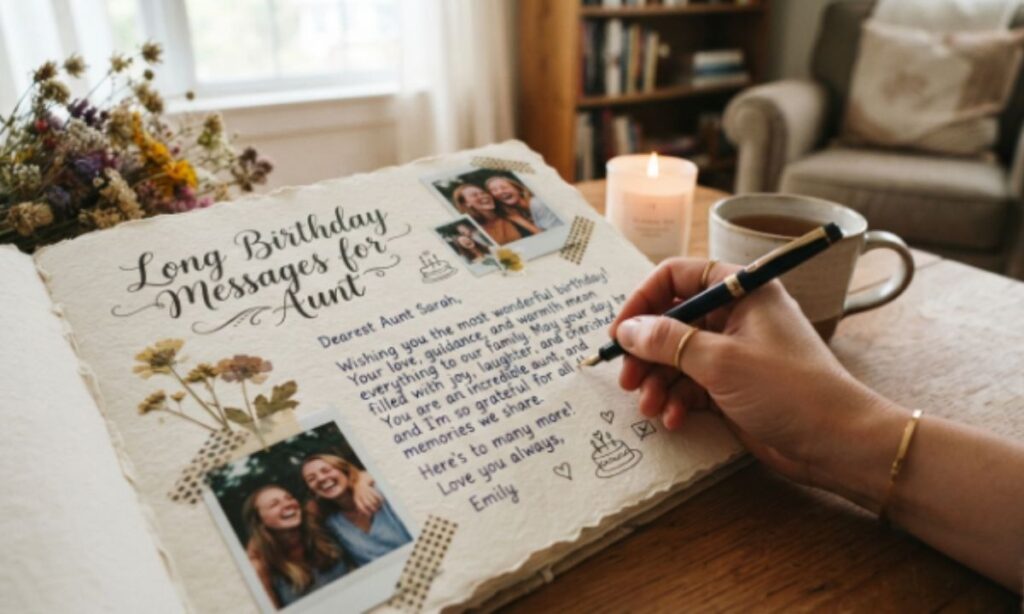 Long Birthday
Messages for
Aunt
Dearest Aunt Sarah,
Wishing you the most wonderful birthday!
Your love, guidance, and warmth mean
everything to our family. May your day be
filled with joy, laughter, and cherished
You are an incredible aunt, and
and I'm so grateful for all
memories we share.
Here's to many more!
Love you always,
Emily